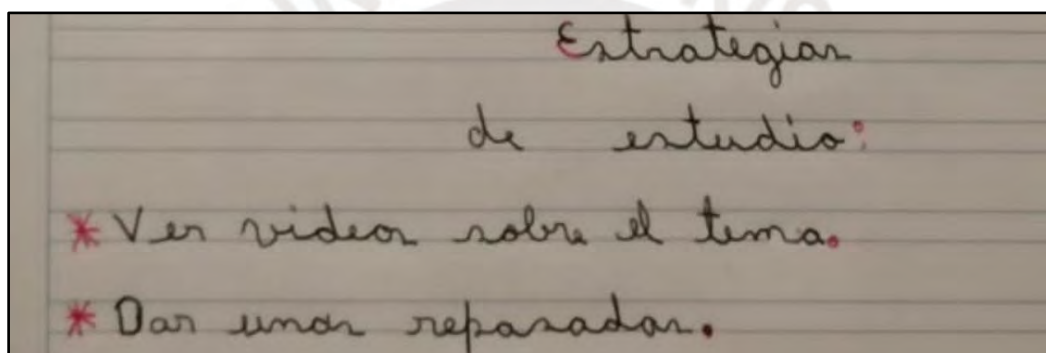 Estrategias
de estudio:
* Ver videos sobre el tema.
* Dar unas repasadas.